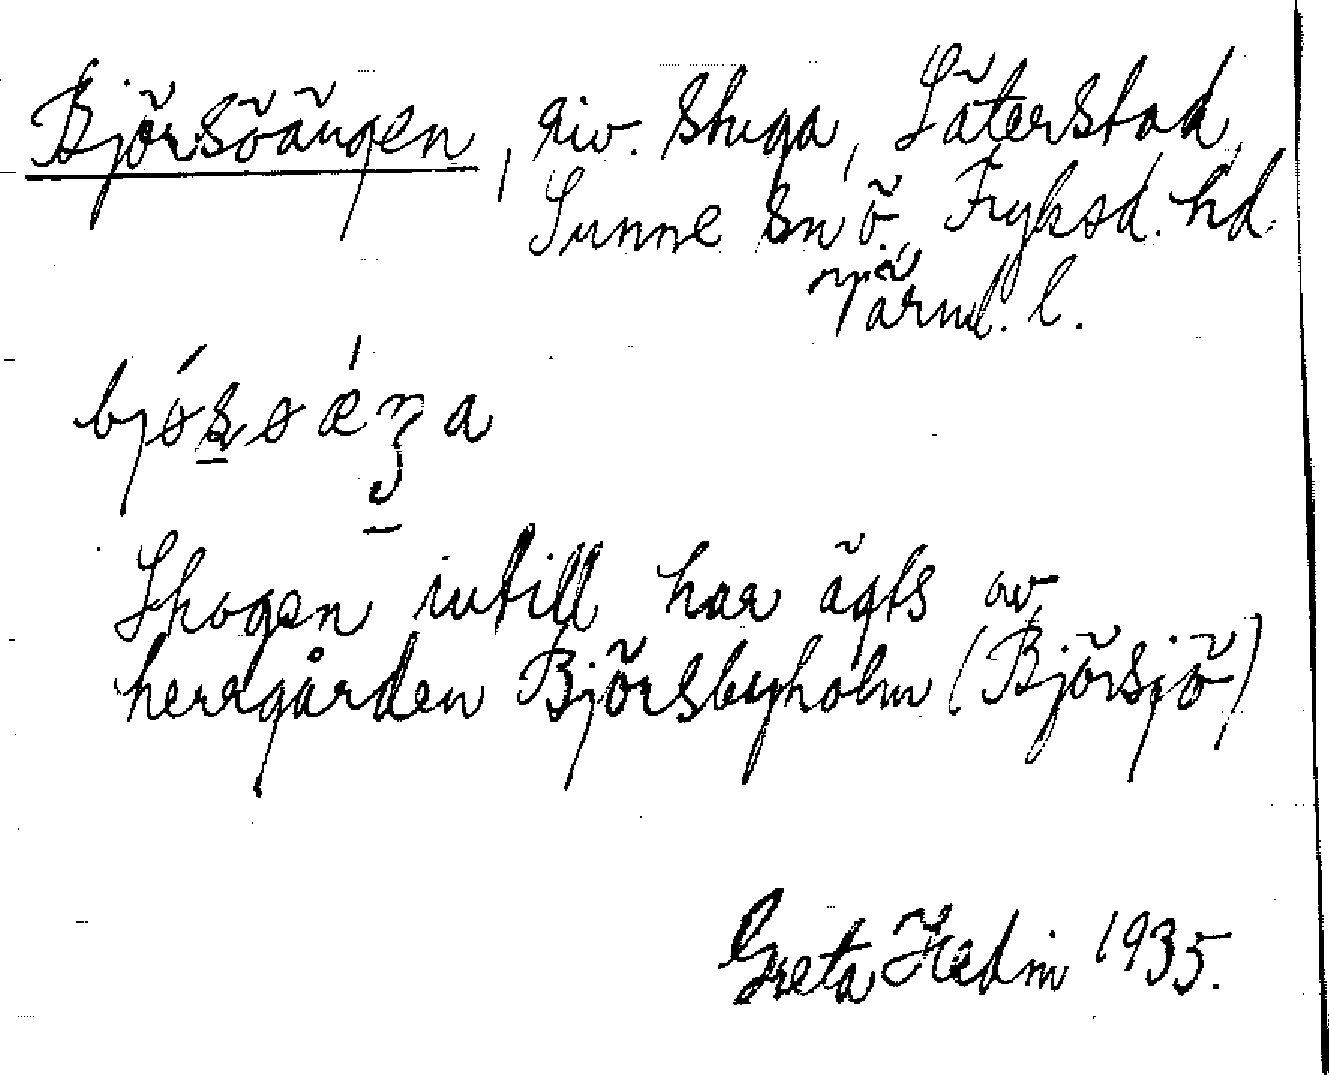 Björsöängen, riv. stuga, Säterstad,
Sunne sn ö., Fryksd. hd
Värml. l.
Skogen intill har ägts av
herrgården Björsbyholm (Björsjö)
Greta Hedin 1935.